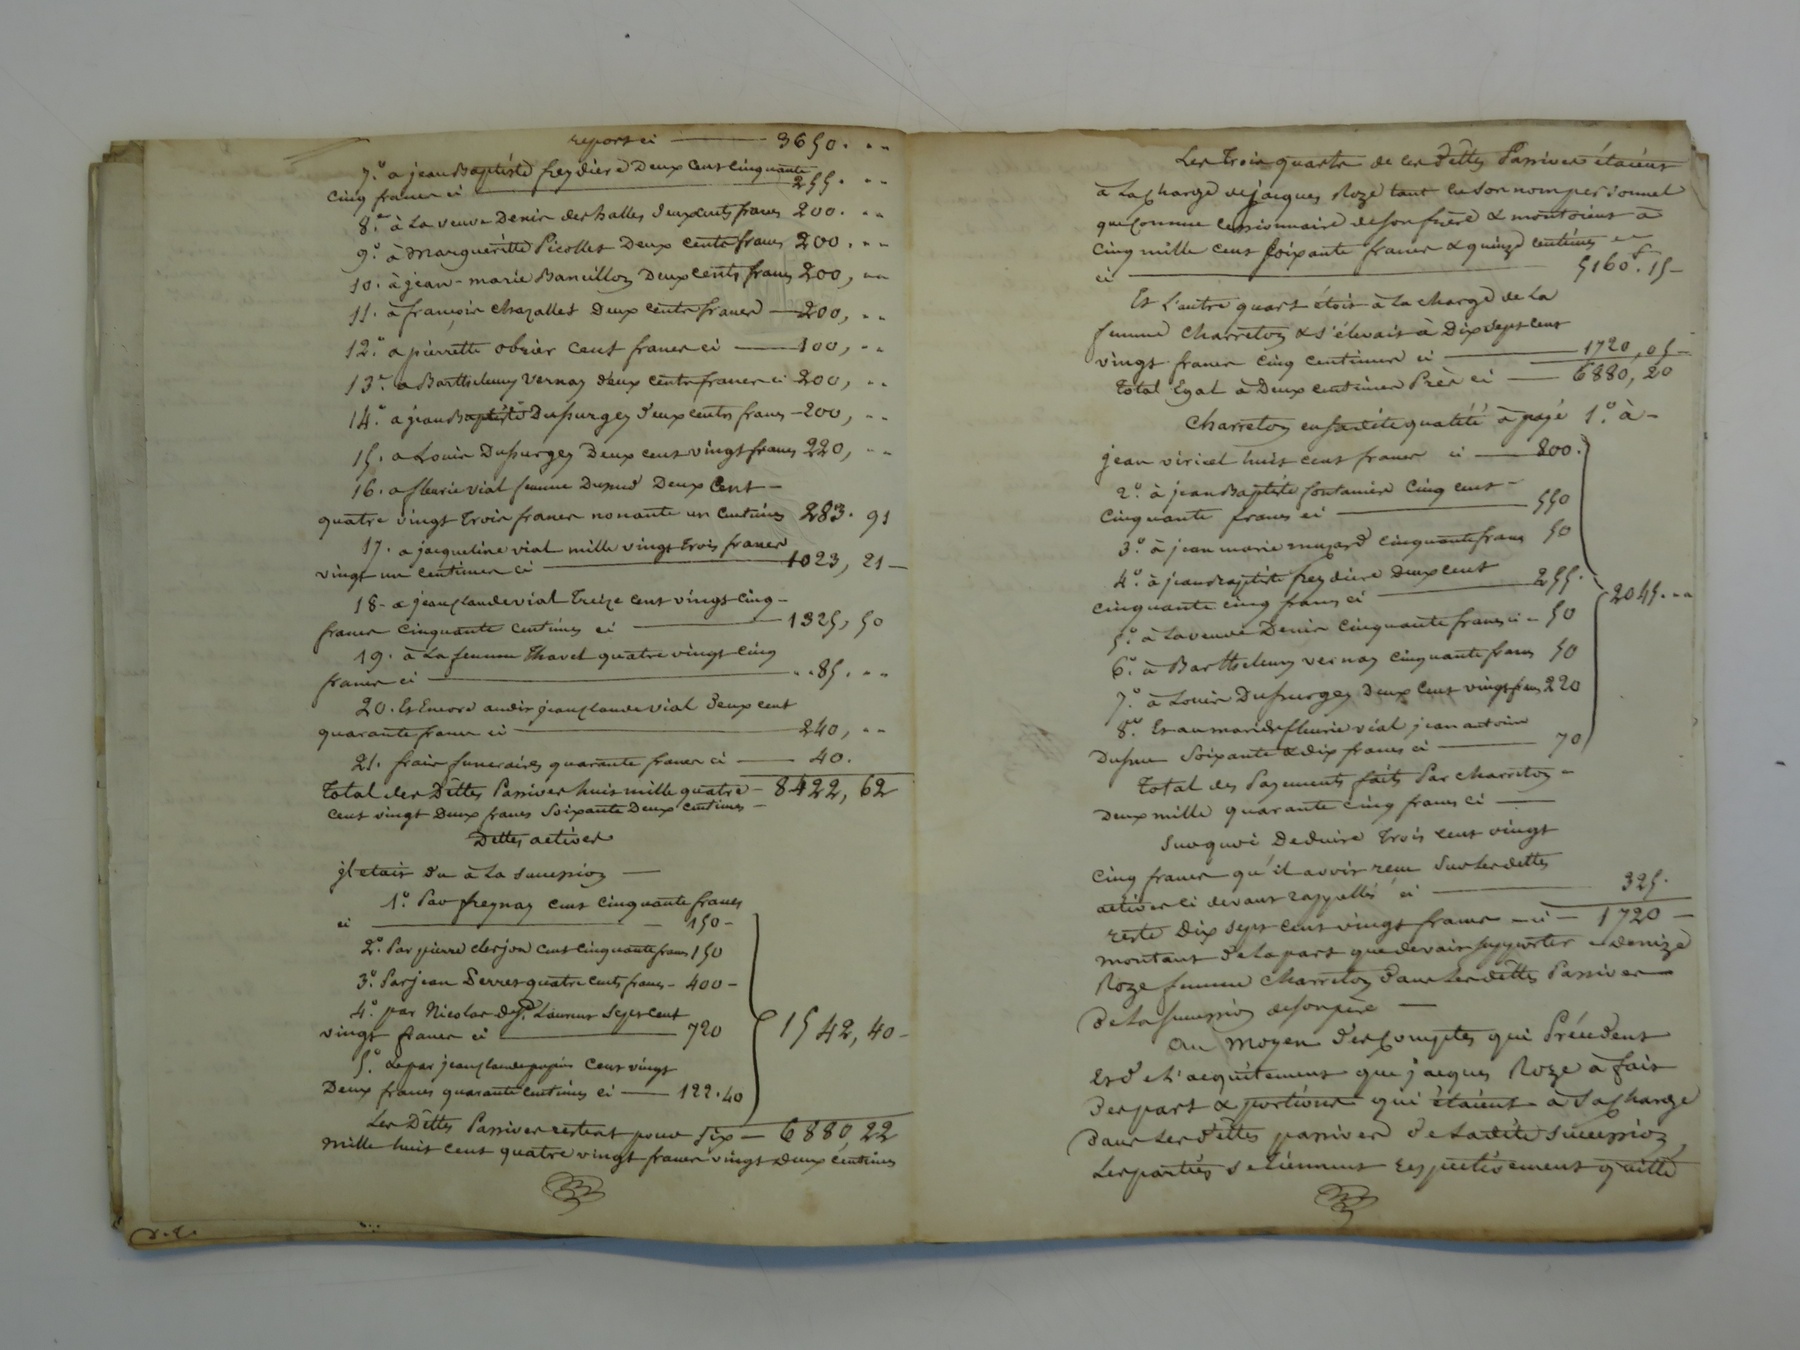 report ci — 3650. "
7.° a jean Baptiste freydiere Deux Cent Cinquante
Cinq francs ci — 255. "
8.° à La veuve Denis des halles deux cents francs 200. "
9.° à Marguéritte Picollet Deux cents francs 200. "
10. à jean-marie Bancillon Deux cents francs 200, "
11. à françois chazallet Deux cents francs — 200, "
12.° a pierrette obrier Cent francs ci — 100, "
13.° a Barthelemy vernay deux cents francs ci 200, "
14.° a jean Baptiste Dupurgey deux cents francs — 200, "
15. a Louis Dupurgey Deux cent vingt francs 220, "
16. a fleurie vial femme Dupuis Deux Cent —
quatre vingt trois francs nonante un Centimes 283. 91
17. a jacqueline vial mille vingt trois francs
vingt un centimes ci — 1023, 21 —
18 — a jean Claude vial treize cent vingt cinq —
francs cinquante centimes ci — 1325, 50
19. à La femme thavel quatre vingt cinq
francs ci — 85. "
20. Et Encore audit jean Claude vial deux cent
quarante francs ci — 240, "
21. frais funeraires quarante francs ci — 40.
total des Dêttes Passives huit mille quatre — 8422, 62
cent vingt Deux francs Soixante Deux centimes —
Dettes actives
jl etait du à La Succession —
1.° Par freynay cent Cinquante francs
ci — 150 —
2.° Par pierre clerjon cent Cinquante francs 150
3.° Par jean Perret quatre cents francs — 400 —
4.° par Nicolas Laurent Sept cent
vingt francs ci — 720
5.° & par jean Claude papin Cent vingt
Deux francs quarante Centimes ci — 122. 40
1542, 40 —
Les Dêttes Passives restent pour Six — 6880, 22
mille huit cent quatre vingt francs vingt Deux centimes
Les Trois quarts de ces dêttes Passives étaient
à La charge de jacques Roze tant en Son nom personnel
que Comme Cessionnaire de Son frère & montoient à
Cinq mille cent Soixante francs & quinze Centimes
ci — 5160.f 15 —
Et L'autre quart étoit à La charge de La
femme Charreton & S'élevait à Dix Sept cent
vingt francs cinq centimes ci — 1720, 05 —
total Egal à Deux centimes Près ci — 6880, 20
Charreton en Sadite qualité à payé 1.° à —
jean viricel huit cent francs ci — 800.
2.° à jean Baptiste fontanier Cinq cent —
Cinquante francs ci — 550
3.° à jean marie muzard Cinquante francs 50
4.° à jean Baptiste freydiere Deux cent
cinquante cinq francs ci — 255.
5.° à La veuve Denis Cinquante francs ci — 50
6.° à Barthelemy vernay cinquante francs 50
7.° à Louis Dupurgey Deux Cent vingt francs 220
8.° Et au mari de fleurie vial jean antoine
Dupuis Soixante & dix francs ci — 70
2045. "
Total des Payements faits Par charreton —
Deux mille quarante cinq francs ci —
Sur quoi Deduire trois cent vingt
Cinq francs qu'il avoit recu Sur Les dettes
actives ci devant rappellés ci — 325.
reste Dix Sept cent vingt francs — ci — 1720 —
montant de La part que devait Supporter Denize
Roze femme Charreton dans Les dêttes Passives —
de La Succession de Son père —
Au moyen des Comptes qui Précedent
Et de L'acquitement que jacques Roze à fait
des part & portions qui étaient à Sa Charge
dans Les dêttes passives de Ladite Succession,
Les parties Se tiennent respectivement quitte